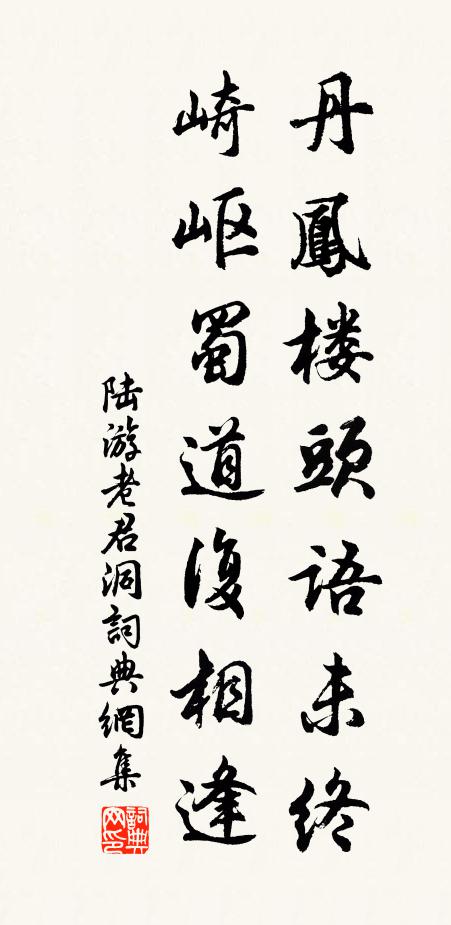 丹鳳楼頭語未終
崎岖蜀道復相逢
陆游老君洞詞典網集
詞典网印